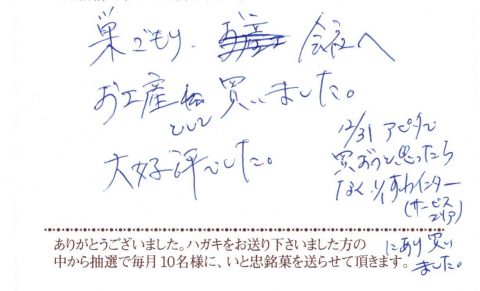 巣ごもり 会社へ
お土産として 買いました。
大好評でした。
12/31 アピタで
買おうと思ったら
なく 1/1 すわインター
(サービス
エリア)
にあり買い
ました。
ありがとうございました。ハガキをお送り下さいました方の
中から抽選で毎月10名様に、いと忠銘菓を送らせて頂きます。